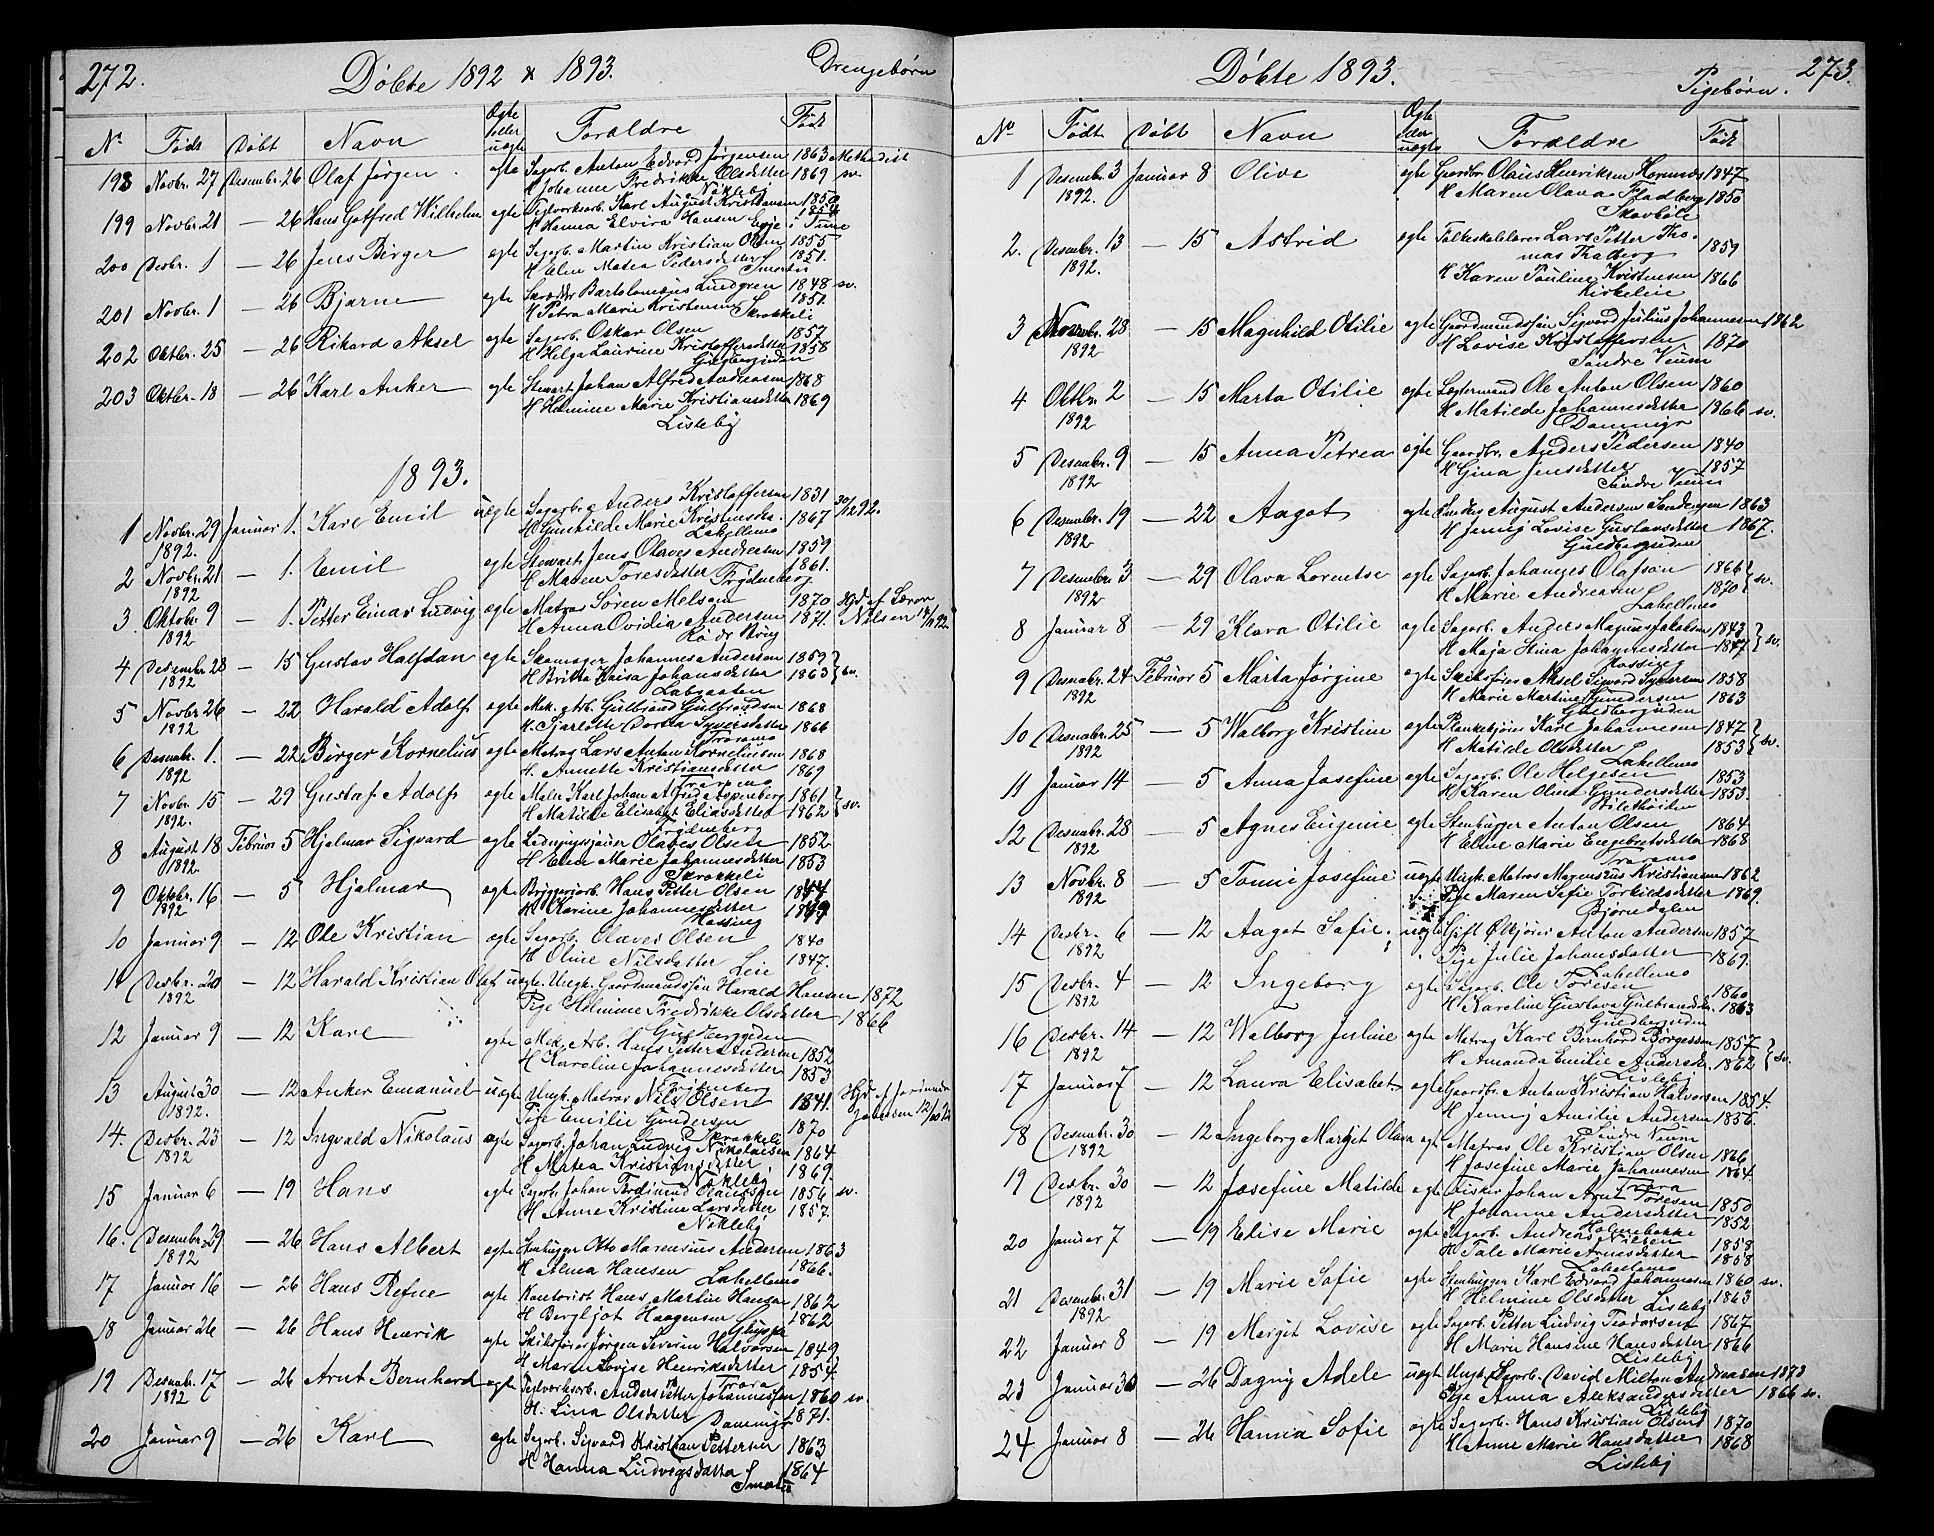 272.
Döbte 1892 & 1893.
Drengebørn
No Født Døbt Navn Ægte eller uægte Forældre Født
198 Novbr. 27 Desember 26 Olaf Jørgen ægte Sagarb. Anton Edvard Jørgensen 1863 Methodist
H Johanne Fredrikke Olsdatter 1869 sv.
Nöklebÿ
199 Novbr. 21 — 26 Hans Gotfred Wilhelm ægte Teglverksarb. Karl August Kristiansen 1850
H Hanna Elvira Hansen 1854
i Tune
200 Desbr. 1 — 26 Jens Birger ægte Sagarb. Martin Kristian Olsen 1855
H Elen Matea Pedersdatter 1851.
201 Novbr. 1 — 26 Bjarne ægte Skrædder Bartolomæus Lundgren 1848 sv.
H Petra Marie Kristensen 1851.
Skrokkeli
202 Oktbr. 25 — 26 Rikard Aksel ægte Sagarb. Oskar Olsen 1857
H Helga Laurine Kristoffersdatter 1858
Guldbergsiden
203 Oktbr. 18 — 26 Karl Anker ægte Stewart Johan Alfred Andreasen 1868
H Helmine Marie Kristiansdatter 1869
Lislebÿ
1893.
1 Novbr. 29 Januar 1. Karl Emil uægte Sagarb. Anders Kristoffersen 1831 30/12 92.
1892. H Gunhilde Marie Kristensen 1867
Labellmo
2 Novbr. 21 — 1. Emil ægte Stewart Jens Olaves Andersen 1859
1892 H Maren Toresdatter 1861.
Frydenberg
3 Oktobr. 9 — 1. Petter Einar Ludvig ægte Matros Sören Melsom 1870
1892 H Anna Ovidia Andersen 1871.
4 Desember 28 — 15 Gustav Halfdan ægte Skomager Johannes Andersen 1859
1892 H Britha Kaisa Johansdatter 1863 sv.
Labgaaten
5 Novbr. 26 — 22 Harald Adolf ægte Mek. Arb. Gulbrand Gulbrandsen 1868
1892 H. Sjarlotte Dortea Syversdatter 1866
Traramo
6 Desembr. 1. — 22 Birger Kornelius ægte Matros Lars Anton Korneliusen 1868
1892 H. Annette Kristiansdatter 1869
Traramo
7 Novbr. 15 — 29 Gustaf Adolf ægte Maler Karl Johan Alfred Aspenberg 1861
1892. H Matilde Elisabet Eliasdatter 1862 sv.
Frydenberg
8 August 18 Februar 5 Hjelmar Sigvard ægte Ladningssjauer Olaves Olsen 1852
1892. H Elen Marie Johannesdatter 1853
Skrokkeli
9 Oktobr. 16 — 5 Hjalmar ægte Bryggeriarb. Hans Petter Olsen 1844
1892 H Karine Johannesdatter 1849
Hassing
10 Januar 9 — 12 Ole Kristian ægte Sagarb. Olaves Olsen 1840
H Oline Nilsdatter 1847.
Leie
11 Desbr. 20 — 12 Harald Kristian Olaf uægte. Ungk. Gaardmandssön Harald Hansen 1872
1892 Pige Helmine Fredrikke Olsdatter 1866
Guldbergsiden
12 Januar 9 — 12 Karl ægte Mek. Arb. Hans Petter Andersen 1852
H Karoline Johannesdatter 1853
13 August 30 — 12 Anker Emanuel uægte Ungk. Matros Nils Olsen 1841.
1892. Pige Emilie Gundersen 1870
Skrokkeli
14. Desbr. 23 — 12 Ingvald Nikolaus ægte Sagarb. Johan Ludvig Nikolaisen 1864
1892 H Matea Kristiansdatter 1869.
Nöklebÿ
15 Januar 6 — 19 Hans ægte Sagarb. Johan Ferdinand Olaussen 1856 sv.
H Anne Kristine Larsdatter 1857.
Nöklebÿ
16. Desember 29 — 26 Hans Albert ægte Stenhugger Otto Marensius Andersen 1863
1892 H Alma Hansen 1866.
Labellmo
17 Januar 16 — 26 Hans Refne ægte Kontorist Hans Martin Hansen 1862
H Bergljot Haagensen 1862
18 Januar 26 — 26 Hans Henrik ægte Skibsfører Jørgen Severin Halvorsen 1849
H Maren Lovise Henriksdatter 1854
Trara
19 Desembr. 17 — 26 Arnt Bernhard ægte Teglverksarb. Anders Petter Johannessen 1860 sv.
1892 H. Lina Olsdatter 1871.
Dammyr
20 Januar 9 — 26 Karl ægte Sagarb. Sigvard Kristian Pettersen 1863
H Hanna Ludvigsdatter 1864
273.
Döbte 1893.
Pigebörn.
No Født Døbt Navn Ægte eller uægte Forældre Født
1 Desember 3 Januar 8 Olive ægte Gaardbr. Olaus Henriksen 1847
1892. H Maren Olava 1850
Skovböle
2. Desembr. 13 — 15 Astrid ægte Folkeskolelærer Lars Petter Tho-
1892. mas Thalberg 1859
H Karen Pauline Kristensen 1866
Kirkeleie
3 Novbr. 28 — 15 Magnhild Otilie ægte Gaardmandssön Sigvard Julius Johannesen 1862
1892 H Lovise Kristoffersen 1870
Söndre Veum
4 Oktbr. 2 — 15 Marta Otilie ægte Lægtermand Ole Anton Olsen 1860
1892 H Matilde Johannesdatter 1866 sv.
Dammyr
5 Desembr. 9 — 15 Anna Petrea ægte Gaardbr. Anders Pedersen 1840
1892 H Gina Jensdatter 1857
Söndre Veum
6 Desembr. 19 — 22 Aagot ægte Smed August Andersen 1863
1892 H Jenny Lovise Gustavsdatter 1867.
Guldbergsiden
7 Desembr. 3 — 29 Olava Lorentse ægte Sagarb. Johannes Olafson 1866
1892 H Marie Andreasen 1870 sv.
Labellmo
8 Januar 8 — 29 Klara Otilie ægte Sagarb. Anders Magnus Jakobsen 1843
H Maja Stina Johannesdatter 1847 sv.
Hassing
9 Desembr. 24 Februar 5 Marta Jørgine ægte Skibsfører Aksel Sigvard Syversen 1858
1892 H Marie Martine Gundersen 1863
Guldbergsiden
10 Desembr. 25 — 5 Walborg Kristine ægte Plankekjører Karl Johannesen 1847
1892 H Matilde Olsdatter 1853 sv.
Labellmo
11 Januar 14 — 5 Anna Josefine ægte Sagarb. Ole Helgesen 1853
H Karen Olina Gundersdatter 1853.
12 Desembr. 28 — 5 Agnes Eugenie ægte Stenhugger Anton Olsen 1864
1892 H Elline Marie Engebretsdatter 1868
Traramo
13 Novbr. 8 — 5 Tomine Josefine uægte Ungk. Matros Magensius Kristiansen 1862
1892 Pige Maren Sofie Torkildsdatter 1869.
Björndalen
14 Desbr. 6 — 12 Aagot Sofie uægte Gift Ølkjører Anton Andersen 1857
1892 Pige Julie Johansdatter 1869.
Labellmo
15 Desbr. 4 — 12 Ingeborg ægte Sagarb. Ole Toresen 1860
1892 H Karoline Gustava Gulbrandsdr. 1863
Guldbergsiden
16 Desbr. 14 — 12 Walborg Juline ægte Matros Karl Bernhard Børgessen 1857
1892 H Amanda Emilie Andersdr. 1862 sv.
Lislebÿ
17 Januar 7 — 12 Laura Elisabet ægte Gaardbr. Anton Kristian Halvorsen 1854.
H Jenny Amilie Andersen 1856.
Söndre Veum
18 Desembr. 30 — 12 Ingeborg Margit Olava ægt Matros Ole Kristian Olsen 1866
1892 H Josefine Marie Johannesen 1864.
Trara
19 Desbr. 30 — 12 Josefine Matilde ægt Fisker Johan Arnt Toresen 1850
1892 H Johanne Andersdatter 1852
Holmebakke
20 Januar 7 — 19 Elise Marie ægte Sagarb. Andreas Nilsen 1858
H Tale Marie Arnesdatter 1858
Labellmo
21 Desembr. 31 — 19 Marie Sofie ægte Stenhugger Karl Edvard Johannesen 1860 sv.
1892 H Helmine Olsdatter 1863
Lislebÿ
22 Januar 8 — 19 Margit Lovise ægte Sagarb. Petter Ludvig Teodorsen 1867
H Marie Hansine Hansdatter 1866
Lislebÿ
23 Januar 30 — 26 Dagny Adele uægt Ungk. Sagarb. David Milton Andreasen 1873
Pige Anna Aleksandersdatter 1866 sv.
Lislebÿ
24 Januar 8 — 26 Hanna Sofie ægte Sagarb. Hans Kristian Olsen 1870
H Anne Marie Hansdatter 1868
Lislebÿ